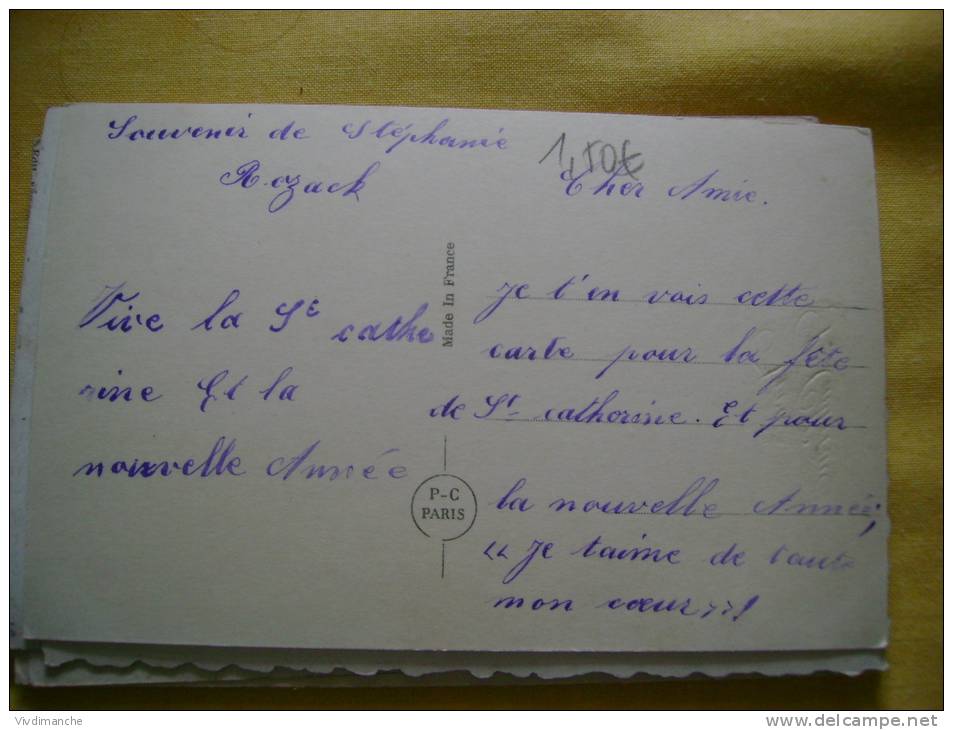 Souvenir de Stéphanie
Rozack
1,50€
Cher Amie.
Vive la Ste cathe
rine Et la
nouvelle Année
Made In France
P-C
PARIS
Je t'en vois cette
carte pour la fête
de St catherine. Et pour
la nouvelle Année,
"Je taime de toute
mon cœur"!
Vivdimanche
www.delcampe.net